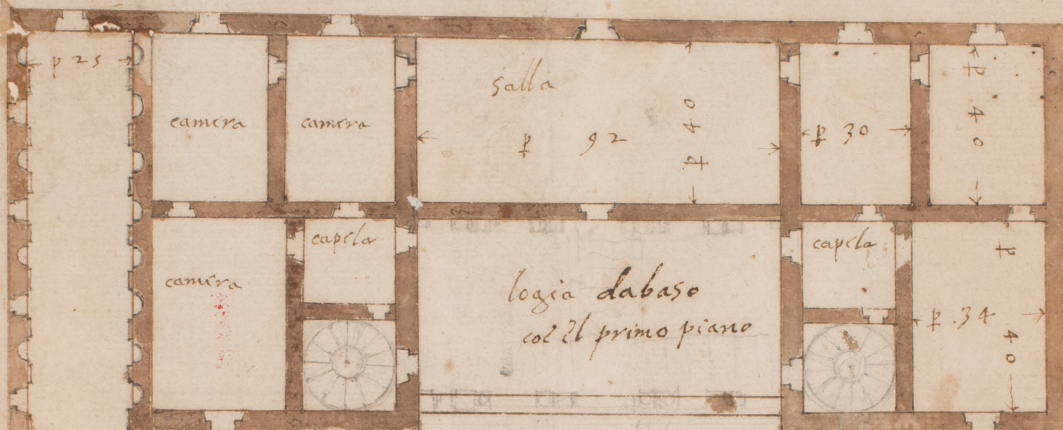 p 25
camera
camera
salla
p 92
p 40
p 30
p 40
camera
capela
logia dabaso
col il primo piano
capela
p 34
p 40